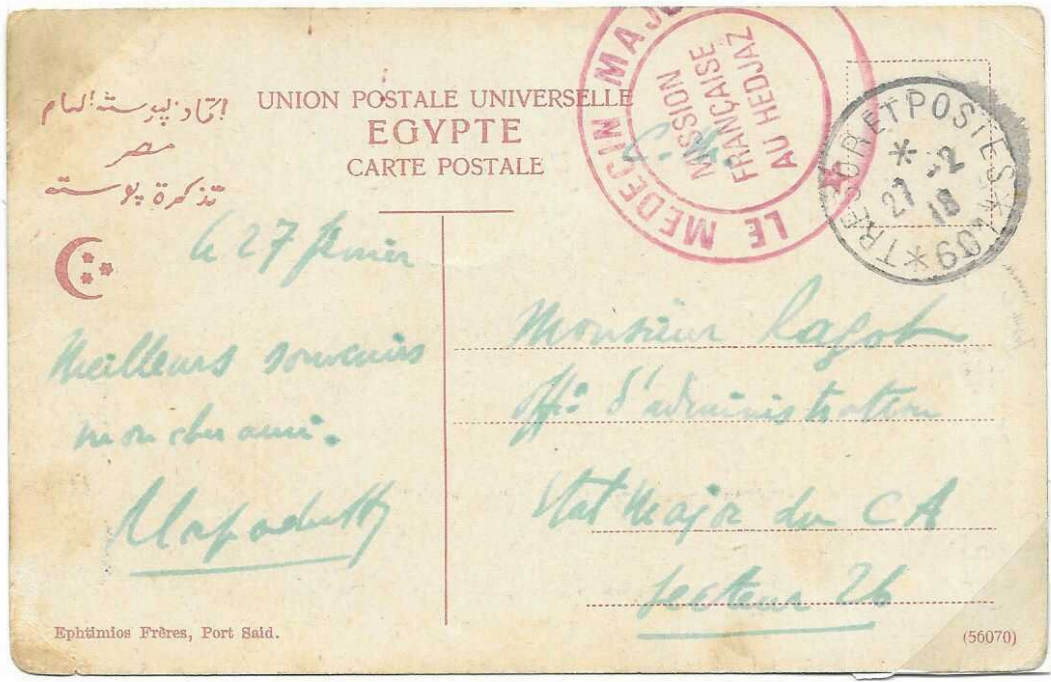 اتحاد پوسته العام
مصر
تذكرة پوسته
UNION POSTALE UNIVERSELLE
EGYPTE
CARTE POSTALE
LE MEDECIN MAJ
MISSION
FRANÇAISE
AU HEDJAZ
TRESOR ET POSTES
27 -2
18
*601*
le 27 février
Meilleurs souvenirs
mon cher ami.
Monsieur Lagot
Off: d'administration
Etat Major du CA
secteur 26
Ephtimios Frères, Port Said.
(56070)